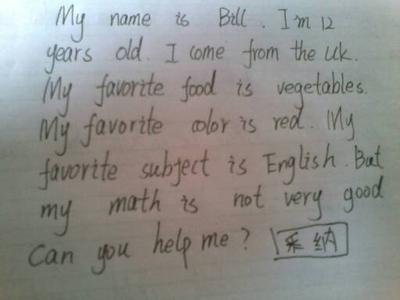 My name is Bill. I'm 12
years old. I come from the uk.
My favorite food is vegetables.
My favorite color is red. My
favorite subject is English. But
my math is not very good
Can you help me? 采纳